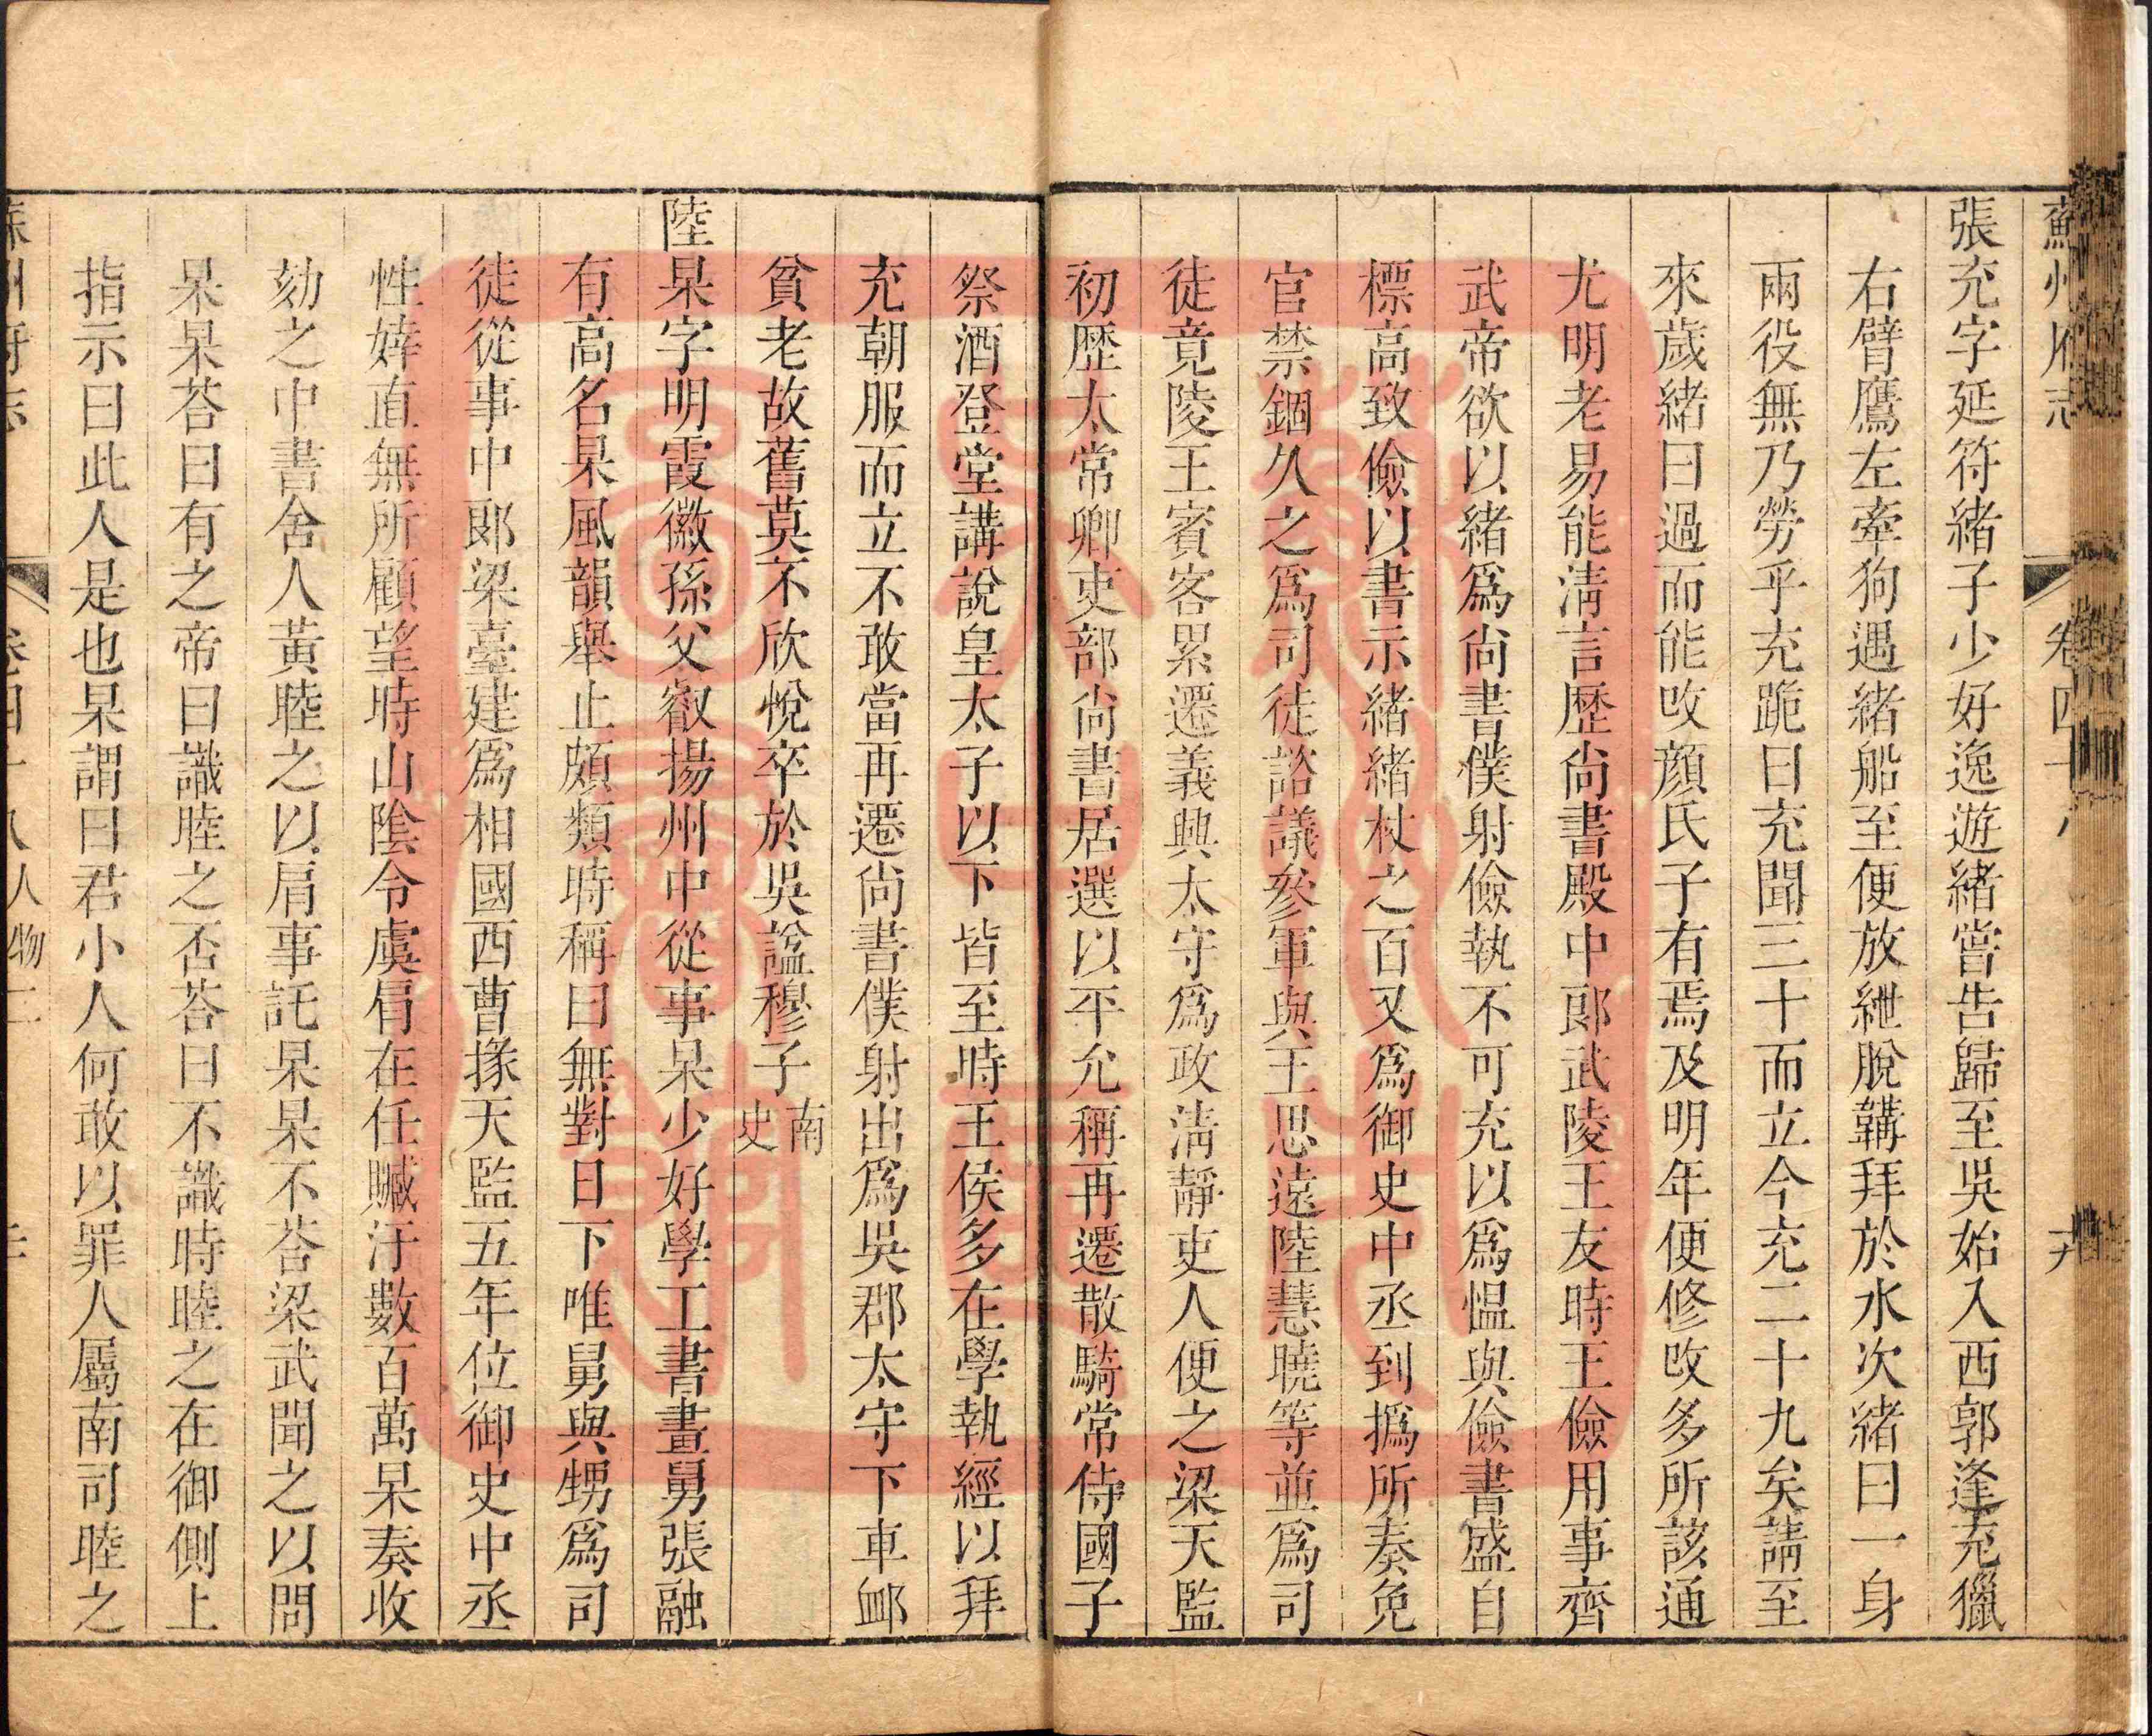 張充字延符緒子少好逸遊緒嘗告歸至吳始入西郭逢充獵
右臂鷹左牽狗遇緒船至便放紲脫韝拜於水次緒曰一身
兩役無乃勞乎充跪曰充聞三十而立今充二十九矣請至
來歲緒曰過而能攺顔氏子有焉及明年便修攺多所該通
尤明老易能淸言歷尙書殿中郞武陵王友時王儉用事齊
武帝欲以緒爲尙書僕射儉執不可充以爲愠與儉書盛自
標高致儉以書示緒緒杖之百又爲御史中丞到撝所奏免
官禁錮久之爲司徒諮議參軍與王思遠陸慧曉等並爲司
徒竟陵王賓客累遷義興太守爲政淸靜吏人便之梁天監
初歷太常卿吏部尙書居選以平允稱再遷散騎常侍國子
祭酒登堂講說皇太子以下皆至時王侯多在學執經以拜
充朝服而立不敢當再遷尙書僕射出爲吳郡太守下車䘏
貧老故舊莫不欣悅卒於吳諡穆子南史
陸杲字明霞徽孫父叡揚州中從事杲少好學工書畫舅張融
有高名杲風韻舉止頗類時稱曰無對日下唯舅與甥爲司
徒從事中郞梁臺建爲相國西曹掾天監五年位御史中丞
性婞直無所顧望時山陰令虞肩在任贓汙數百萬杲奏收
劾之中書舍人黃睦之以肩事託杲杲不荅梁武聞之以問
杲杲荅曰有之帝曰識睦之否荅曰不識時睦之在御側上
指示曰此人是也杲謂曰君小人何敢以罪人屬南司睦之
人物二